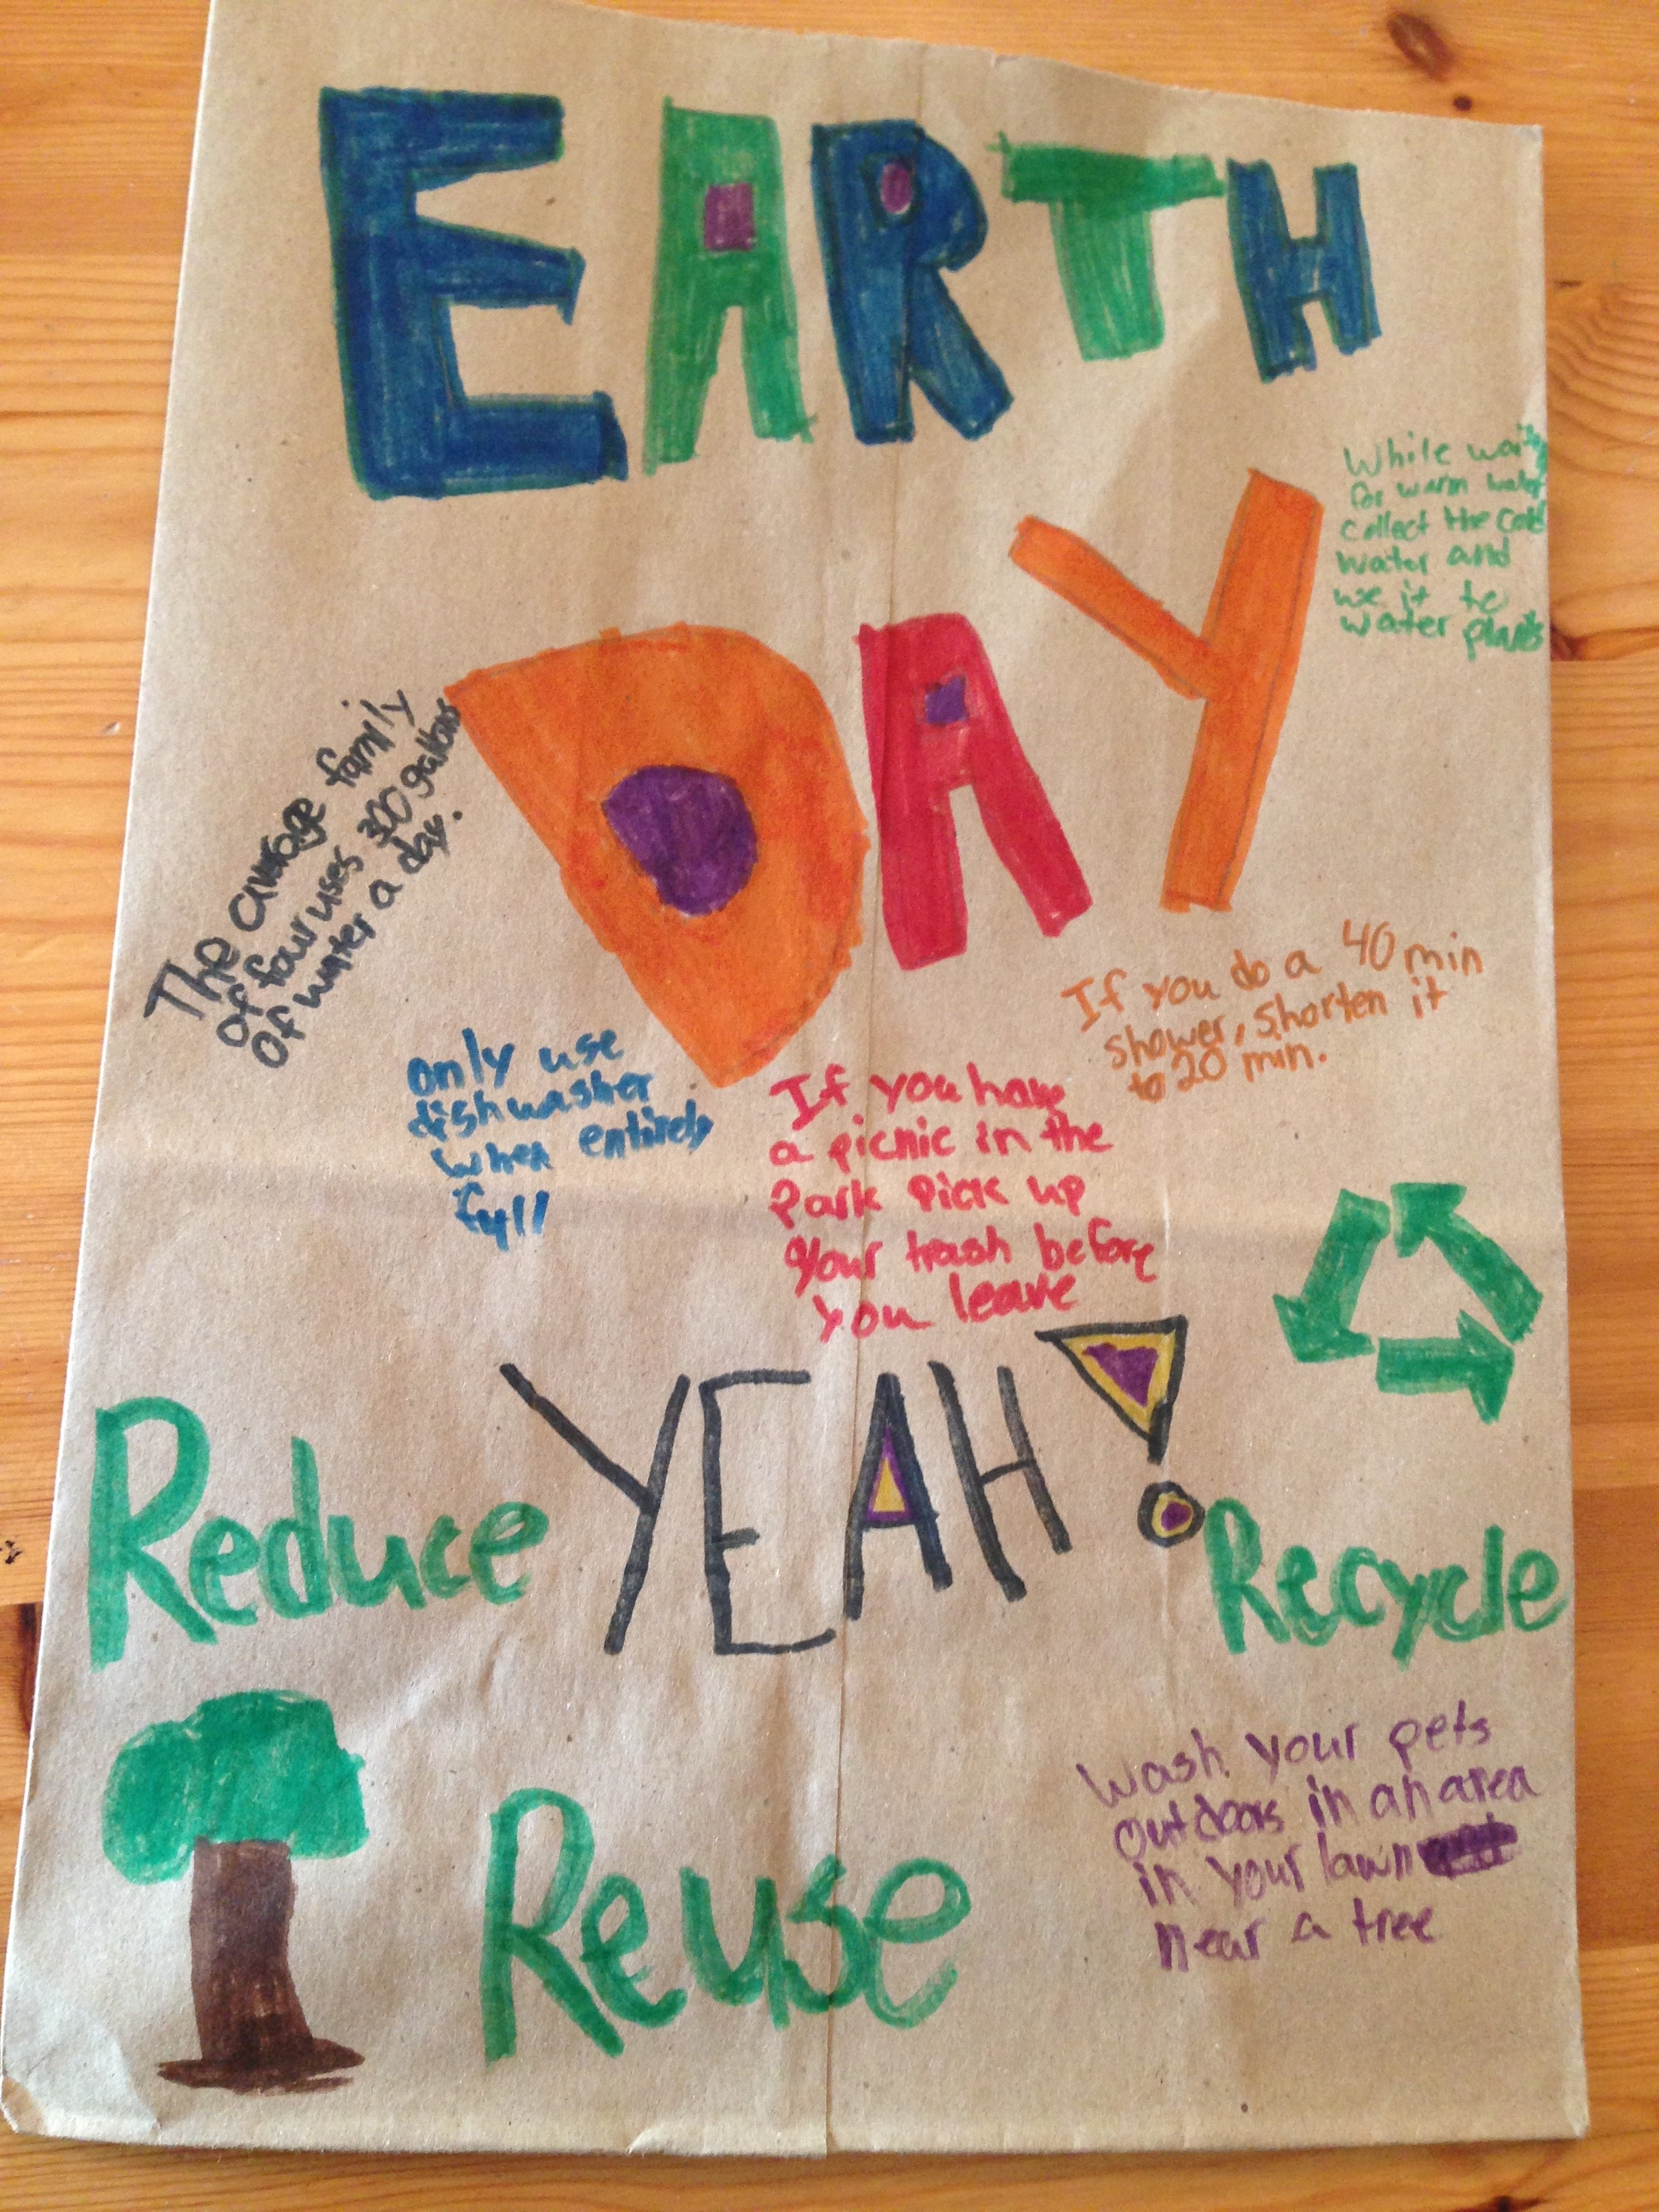 EARTH
DAY
While waitg
for warm water
collect the cold
water and
use it to
water plants
The average family
of four uses 300 gallons
of water a day.
If you do a 40 min
shower, shorten it
to 20 min.
only use
dishwasher
when entirely
full
If you have
a picnic in the
Park pick up
your trash before
you leave
YEAH!
Reduce
Recycle
Reuse
Wash your pets
outdoors in an area
in your lawn
near a tree